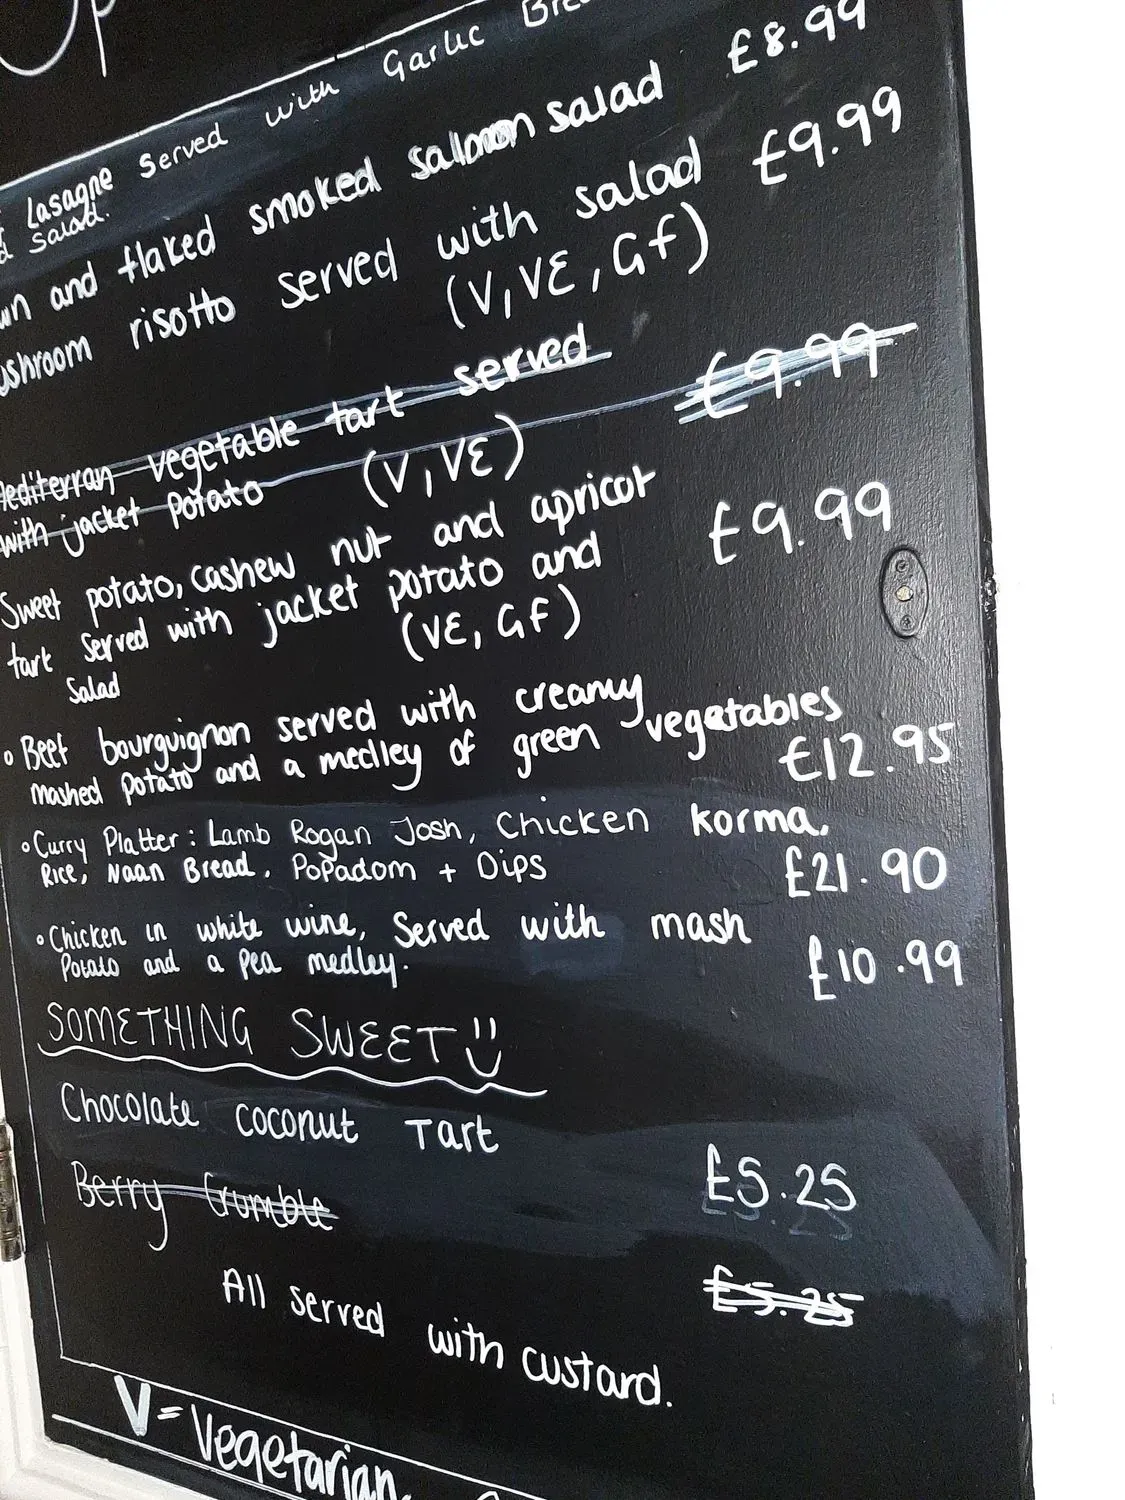 Lasagne Served with Garlic
Salad.
£8.99
and flaked smoked salmon salad
£9.99
risotto served with salad
(V, VE, GF)
vegetable tart served
£9.99
with jacket potato (V, VE)
Sweet potato, cashew nut and apricot
£9.99
tart served with jacket potato and
Salad (VE, GF)
Beef bourguignon served with creamy
mashed potato and a medley of green vegetables
£12.95
Curry Platter: Lamb Rogan Josh, Chicken korma,
Rice, Naan Bread, Popadom + Dips
£21.90
Chicken in white wine, Served with mash
Potato and a pea medley.
£10.99
SOMETHING SWEET
Chocolate coconut Tart
£5.25
Berry Crumble
£5.25
All served with custard.
V = Vegetarian